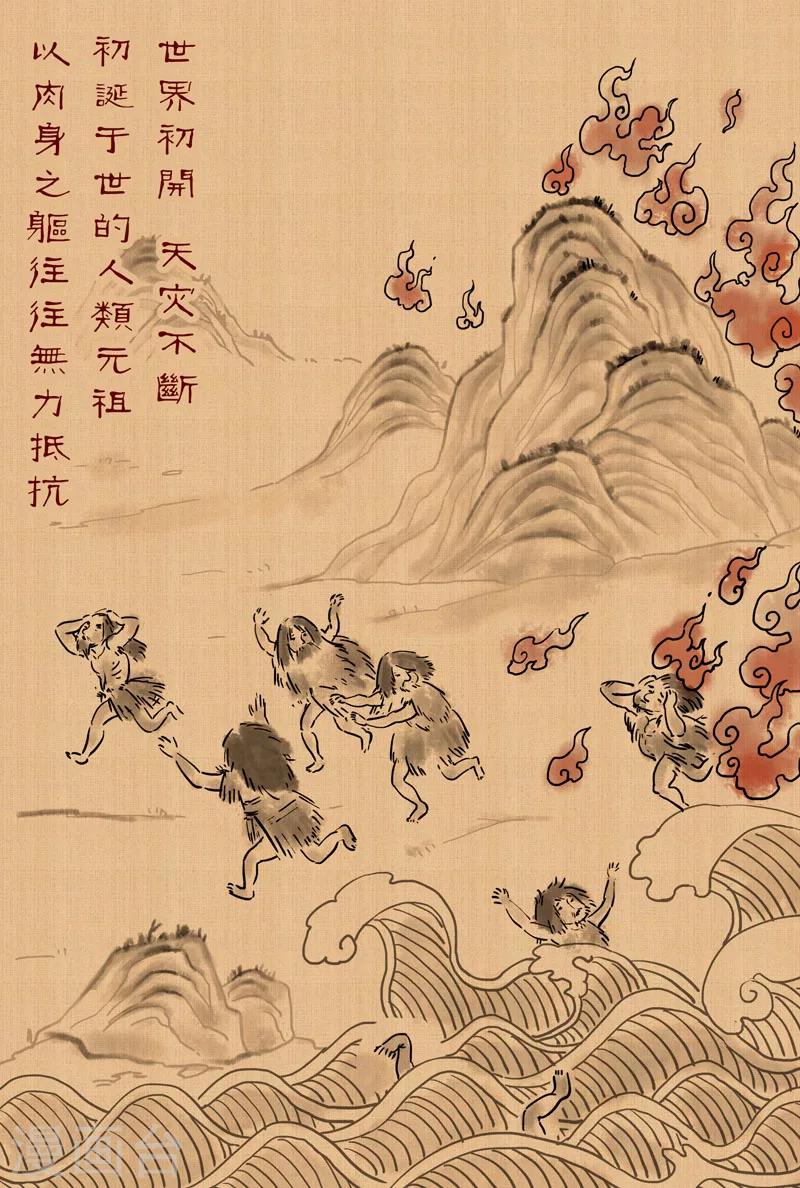 世界初開 天災不斷
初誕于世的人類元祖
以肉身之軀往往無力抵抗
漫画台